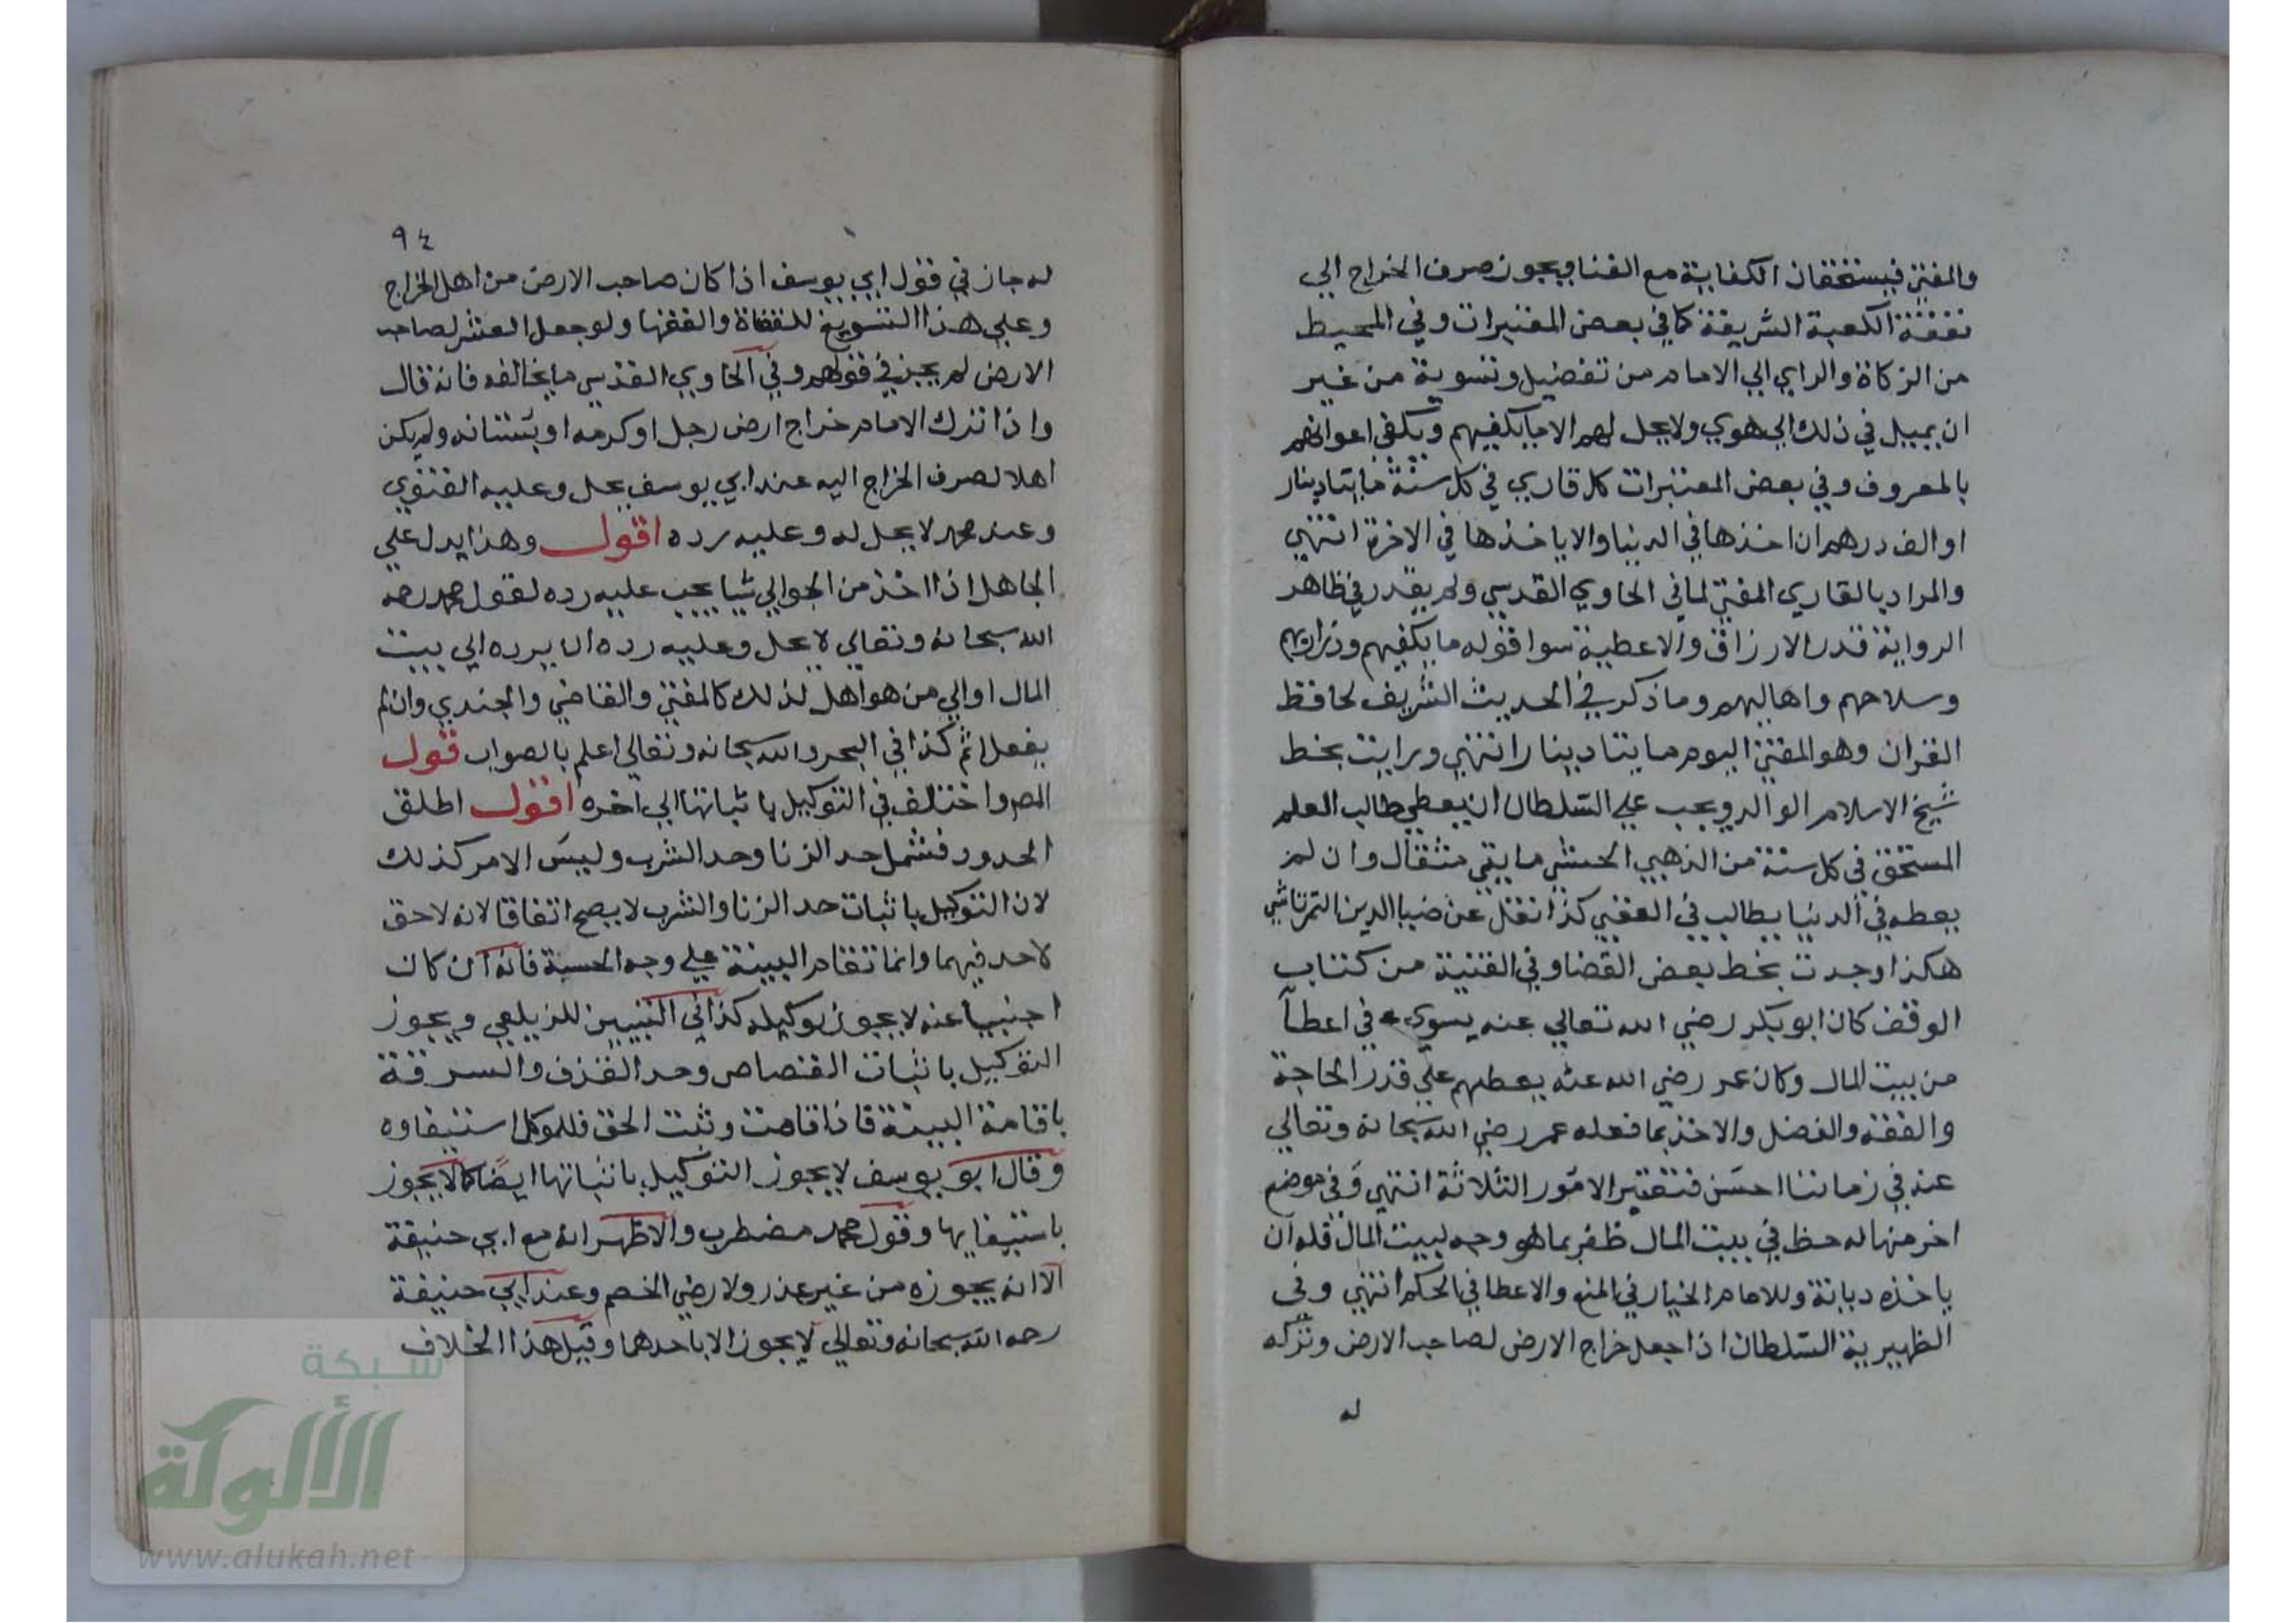 والمفتي فيستحقان الكفاية مع الغنا ويجوز صرف الخراج الي
نفقة الكعبة الشريفة كما في بعض المعتبرات وفي المحيط
من الزكاة والراي الي الامام من تفضيل وتسوية من غير
ان يميل في ذلك الي هوي ولا يحل لهم الا ما يكفيهم ويكفي اعوانهم
بالمعروف وفي بعض المعتبرات كل قاري في كل سنة مايتا دينار
او الف درهم ان اخذها في الدنيا والا ياخذها في الاخرة انتهي
والمراد بالقاري المفتي لما في الحاوي القدسي ولم يقدر في ظاهر
الرواية قدر الارزاق والاعطية سوا قوله ما يكفيهم وذراريهم
وسلاحهم واهاليهم وما ذكر في الحديث الشريف لحافظ
القران وهو المفتي اليوم مايتا دينار انتهي ورايت بخط
شيخ الاسلام الوالد ويجب علي السلطان ان يعطي طالب العلم
المستحق في كل سنة من الذهب مايتي مثقال وان لم
يعطه في الدنيا يطالب في العقبي كذا نقل عن ضيا الدين التمرتاشي
هكذا وجدت بخط بعض القضا وفي القنية من كتاب
الوقف كان ابو بكر رضي الله تعالي عنه يسوي في اعطآ
من بيت المال وكان عمر رضي الله عنه يعطهم علي قدر الحاجة
والفقه والفضل والاخذ بما فعله عمر رضي الله سبحانه وتعالي
عنه في زماننا احسن فتعتبر الامور الثلاثة انتهي وفي موضع
اخر منها له حظ في بيت المال ظفر بما هو وجه لبيت المال فله ان
ياخذه ديانة وللامام الخيار في المنع والاعطا في الحكم انتهي وفي
الظهيرية السلطان اذا جعل خراج الارض لصاحب الارض وتركه
له
٩٤
له جاز في قول ابي يوسف اذا كان صاحب الارض من اهل الخراج
وعلي هذا التسويغ للقضاة والفقها ولو جعل العشر لصاحب
الارض لم يجز في قولهم وفي الحاوي القدسي ما يخالفه فانه قال
واذا ترك الامام خراج ارض رجل او كرمه او بستانه ولم يكن
اهلا لصرف الخراج اليه عند ابي يوسف يحل وعليه الفتوي
وعند محمد لا يحل له وعليه رده اقول وهذا يدل علي
الجاهل اذا اخذ من الجوالي شيا يجب عليه رده لقول محمد رحمه
الله سبحانه وتعالي لا يحل وعليه رده ان يرده الي بيت
المال او الي من هو اهل لذلك كالمفتي والقاضي والجندي وان لم
يفعل اثم كذا في البحر والله سبحانه وتعالي اعلم بالصواب قول
المص واختلف في التوكيل باثباتها الي اخره اقول اطلق
الحدود فشمل حد الزنا وحد الشرب وليس الامر كذلك
لان التوكيل باثبات حد الزنا والشرب لا يصح اتفاقا لانه لا حق
لاحد فيهما وانما تقام البينة علي وجه الحسبة فانه ان كان
اجنبيا عنه لا يجوز توكيله كذا في التبيين للزيلعي ويجوز
التوكيل باثبات القصاص وحد القذف والسرقة
باقامة البينة فاذا قامت وثبت الحق فللموكل استيفاوه
وقال ابو يوسف لا يجوز التوكيل باثباتها ايضا كما لا يجوز
باستيفايها وقول محمد مضطرب والاظهر انه مع ابي حنيفة
الا انه يجوزه من غير عذر ولا رضي الخصم وعند ابي حنيفة
رحمه الله سبحانه وتعالي لا يجوز الا باحدهما وقيل هذا الخلاف
شبكة
الألوكة
www.alukah.net